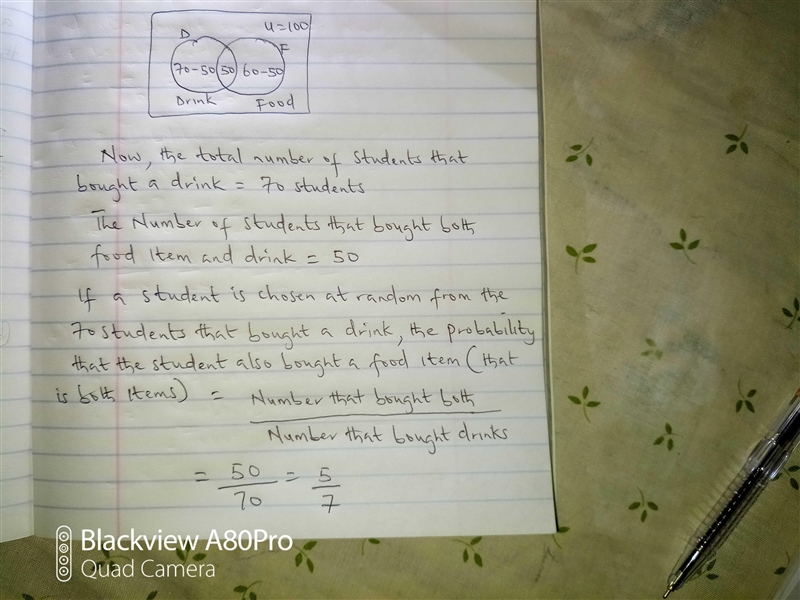 U=100
D
F
70-50 50 60-50
Drink Food
Now, the total number of students that
bought a drink = 70 students
The Number of students that bought both
food item and drink = 50
If a student is chosen at random from the
70 students that bought a drink, the probability
that the student also bought a food item (that
is both items) = Number that bought both
Number that bought drinks
= 50/70 = 5/7
Blackview A80Pro
Quad Camera